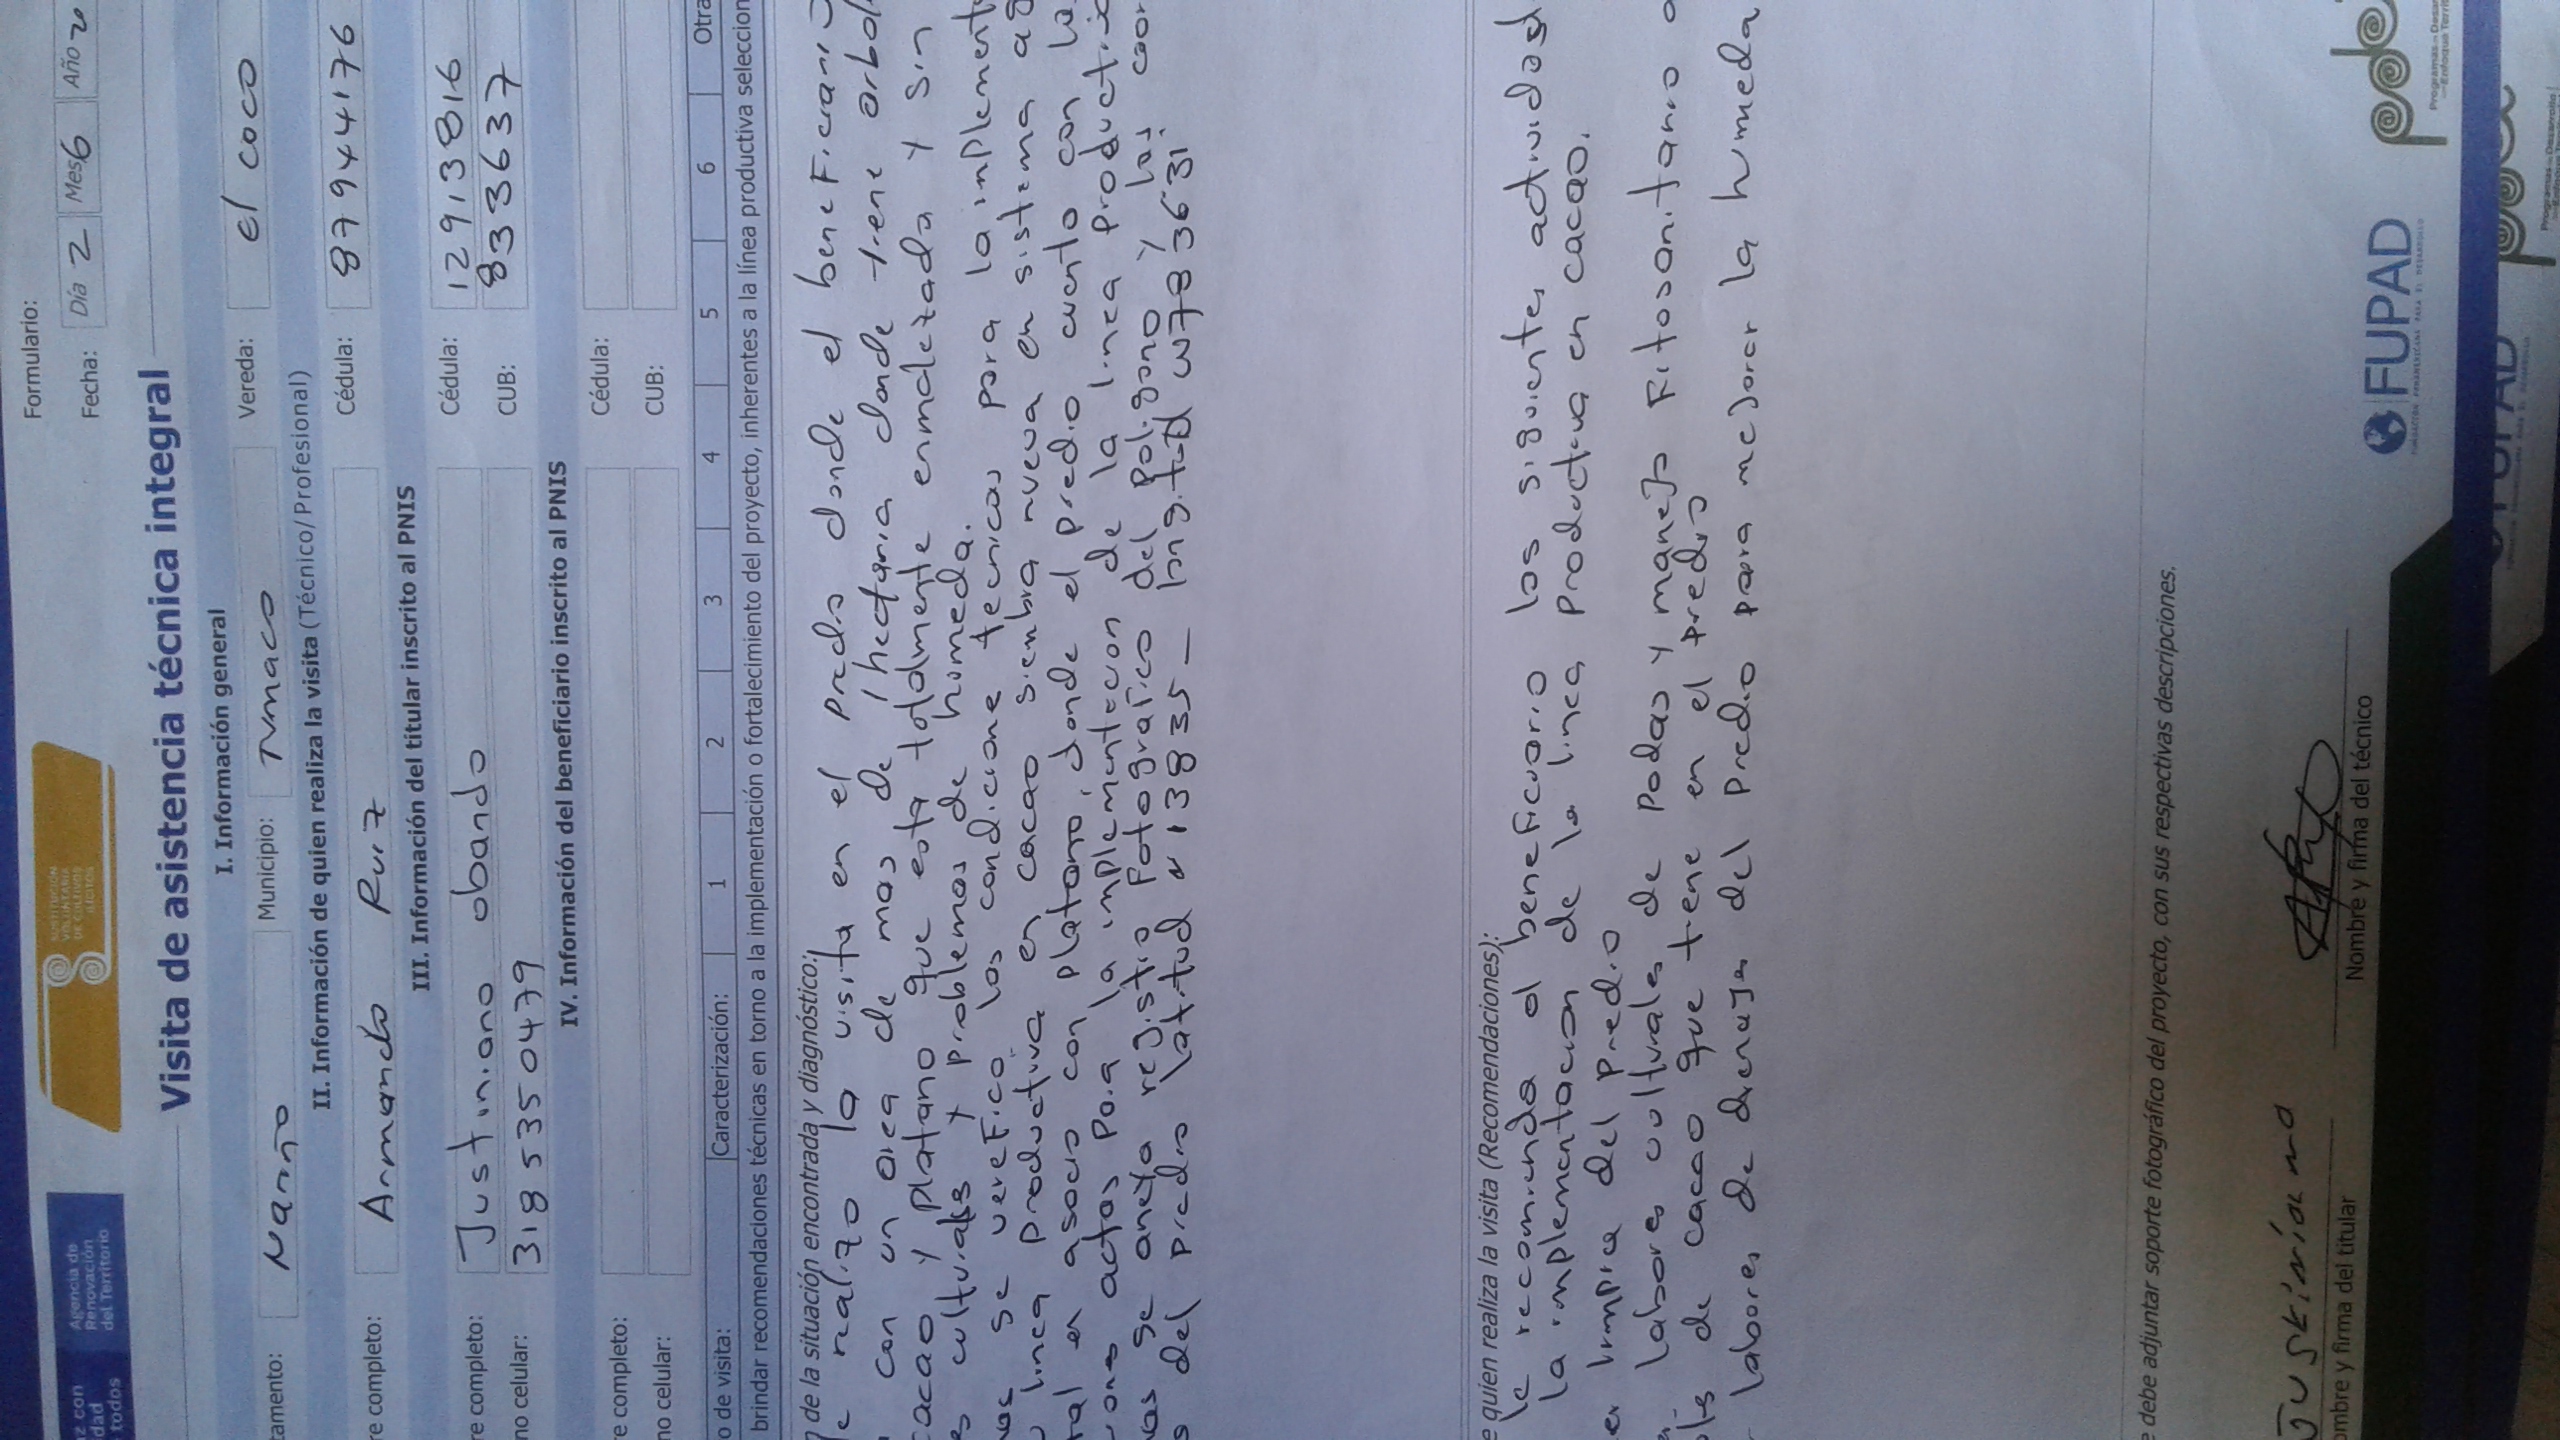 Formulario:
Fecha: Día 2 Mes 6 Año 20
z con
dad
todos
Agencia de
Renovación
del Territorio
SUSTITUCIÓN
VOLUNTARIA
DE CULTIVOS
ILÍCITOS
Visita de asistencia técnica integral
I. Información general
tamento: Nariño Municipio: Tumaco Vereda: el coco
II. Información de quien realiza la visita (Técnico/Profesional)
re completo: Armando Ruiz Cédula: 87944176
III. Información del titular inscrito al PNIS
re completo: Justiniano obando Cédula: 12913816
no celular: 3185350479 CUB: 833637
IV. Información del beneficiario inscrito al PNIS
re completo: Cédula:
no celular: CUB:
o de visita: Caracterización: 1 2 3 4 5 6 Otra
brindar recomendaciones técnicas en torno a la implementación o fortalecimiento del proyecto, inherentes a la línea productiva seleccion
de la situación encontrada y diagnóstico:
e realizo la visita en el predio donde el beneficiario
con un area de mas de 1 hectaria donde tiene arbol
cacao y platano que esta totalmente enmalezada y sin
s culturales y problemas de humeda.
mas se verefico las condicione tecnicas para la implement
linea productiva en cacao siembra nueva en sistema ag
tal en asocio con platano, donde el predio cuenta con la
iones actas para la implementacion de la linea productiv
mas se anexa registro fotografico del poligono y las coor
s del predio latitud N 13835 _ longitud W783631
e quien realiza la visita (Recomendaciones):
le recomienda al beneficiario las siguientes actividad
la implementacion de la linea productiva en cacao.
er limpia del predio
labores culturales de podas y manejo fitosanitario a
ols de cacao que tiene en el predio
labores de drenajes del predio para mejorar la humeda
e debe adjuntar soporte fotográfico del proyecto, con sus respectivas descripciones.
Justiniano
ombre y firma del titular Nombre y firma del técnico
FUPAD
FUNDACIÓN PANAMERICANA PARA EL DESARROLLO
Programas de Desar
Enfoque Territ